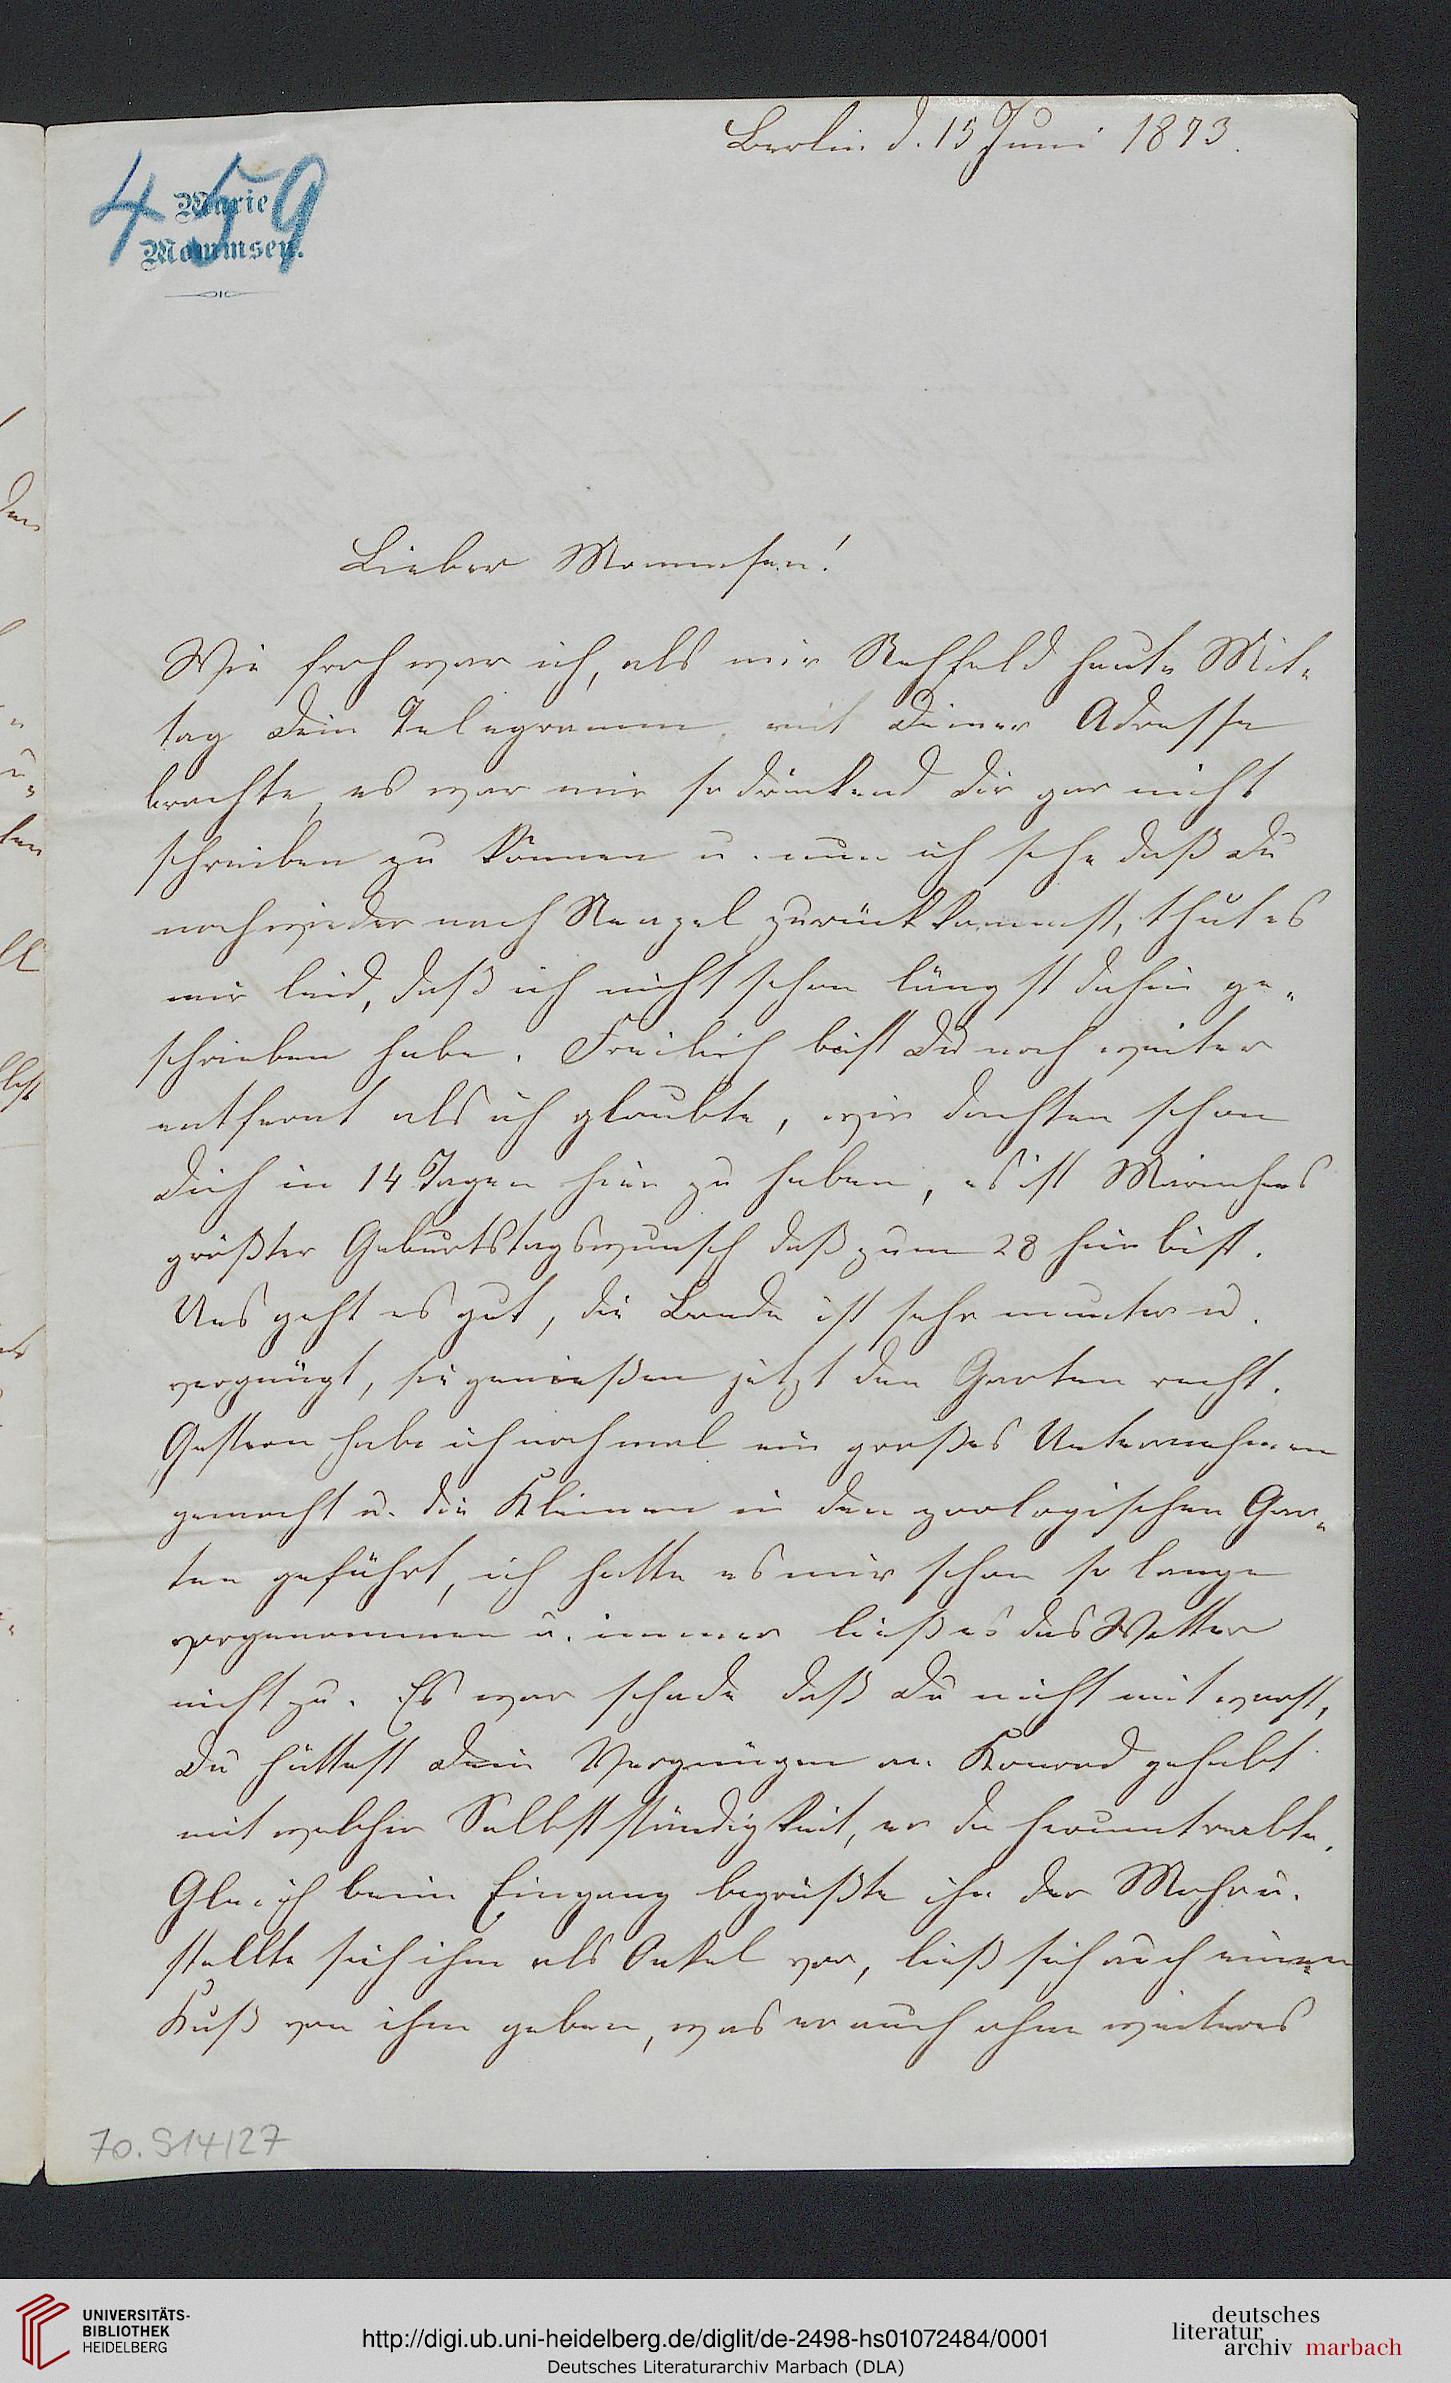 Berlin d. 15 Juni 1873.
459
Marie
Mommsen.
Lieber Mommsen!
Wie froh war ich, als mir Rehfeld heute Mit-
tag Dein Telegramm mit Deiner Adresse
brachte, es war mir so drückend Dir gar nicht
schreiben zu können u. nun ich sehe daß Du
noch wieder nach Neapel zurückkommst, thut es
mir leid, daß ich nicht schon längst dahin ge-
schrieben habe. Freilich bist Du noch weiter
entfernt als ich glaubte, wir dachten schon
Dich in 14 Tagen hier zu haben, es ist Mariechens
größter Geburtstagswunsch daß zum 28 hier bist.
Uns geht es gut, die Bande ist sehr munter u.
vergnügt, sie genießen jetzt den Garten recht.
Gestern habe ich noch mal ein großes Unternehmen
gemacht u. die Kleinen in den zoologischen Gar-
ten geführt, ich hatte es mir schon so lange
vorgenommen u. immer ließ es das Wetter
nicht zu. Es war schade daß Du nicht mit warst,
Du hättest Dein Vergnügen an Konrad gehabt
mit welcher Selbstständigkeit, er da
Gleich beim Eingang begrüßte ihn der Mohr u.
stellte sich ihm als Onkel vor, ließ sich auch einen
Kuß von ihm geben, was er auch ohne weiteres
70.914/27
UNIVERSITÄTS-
BIBLIOTHEK
HEIDELBERG
http://digi.ub.uni-heidelberg.de/diglit/de-2498-hs01072484/0001
Deutsches Literaturarchiv Marbach (DLA)
deutsches
literatur
archiv marbach